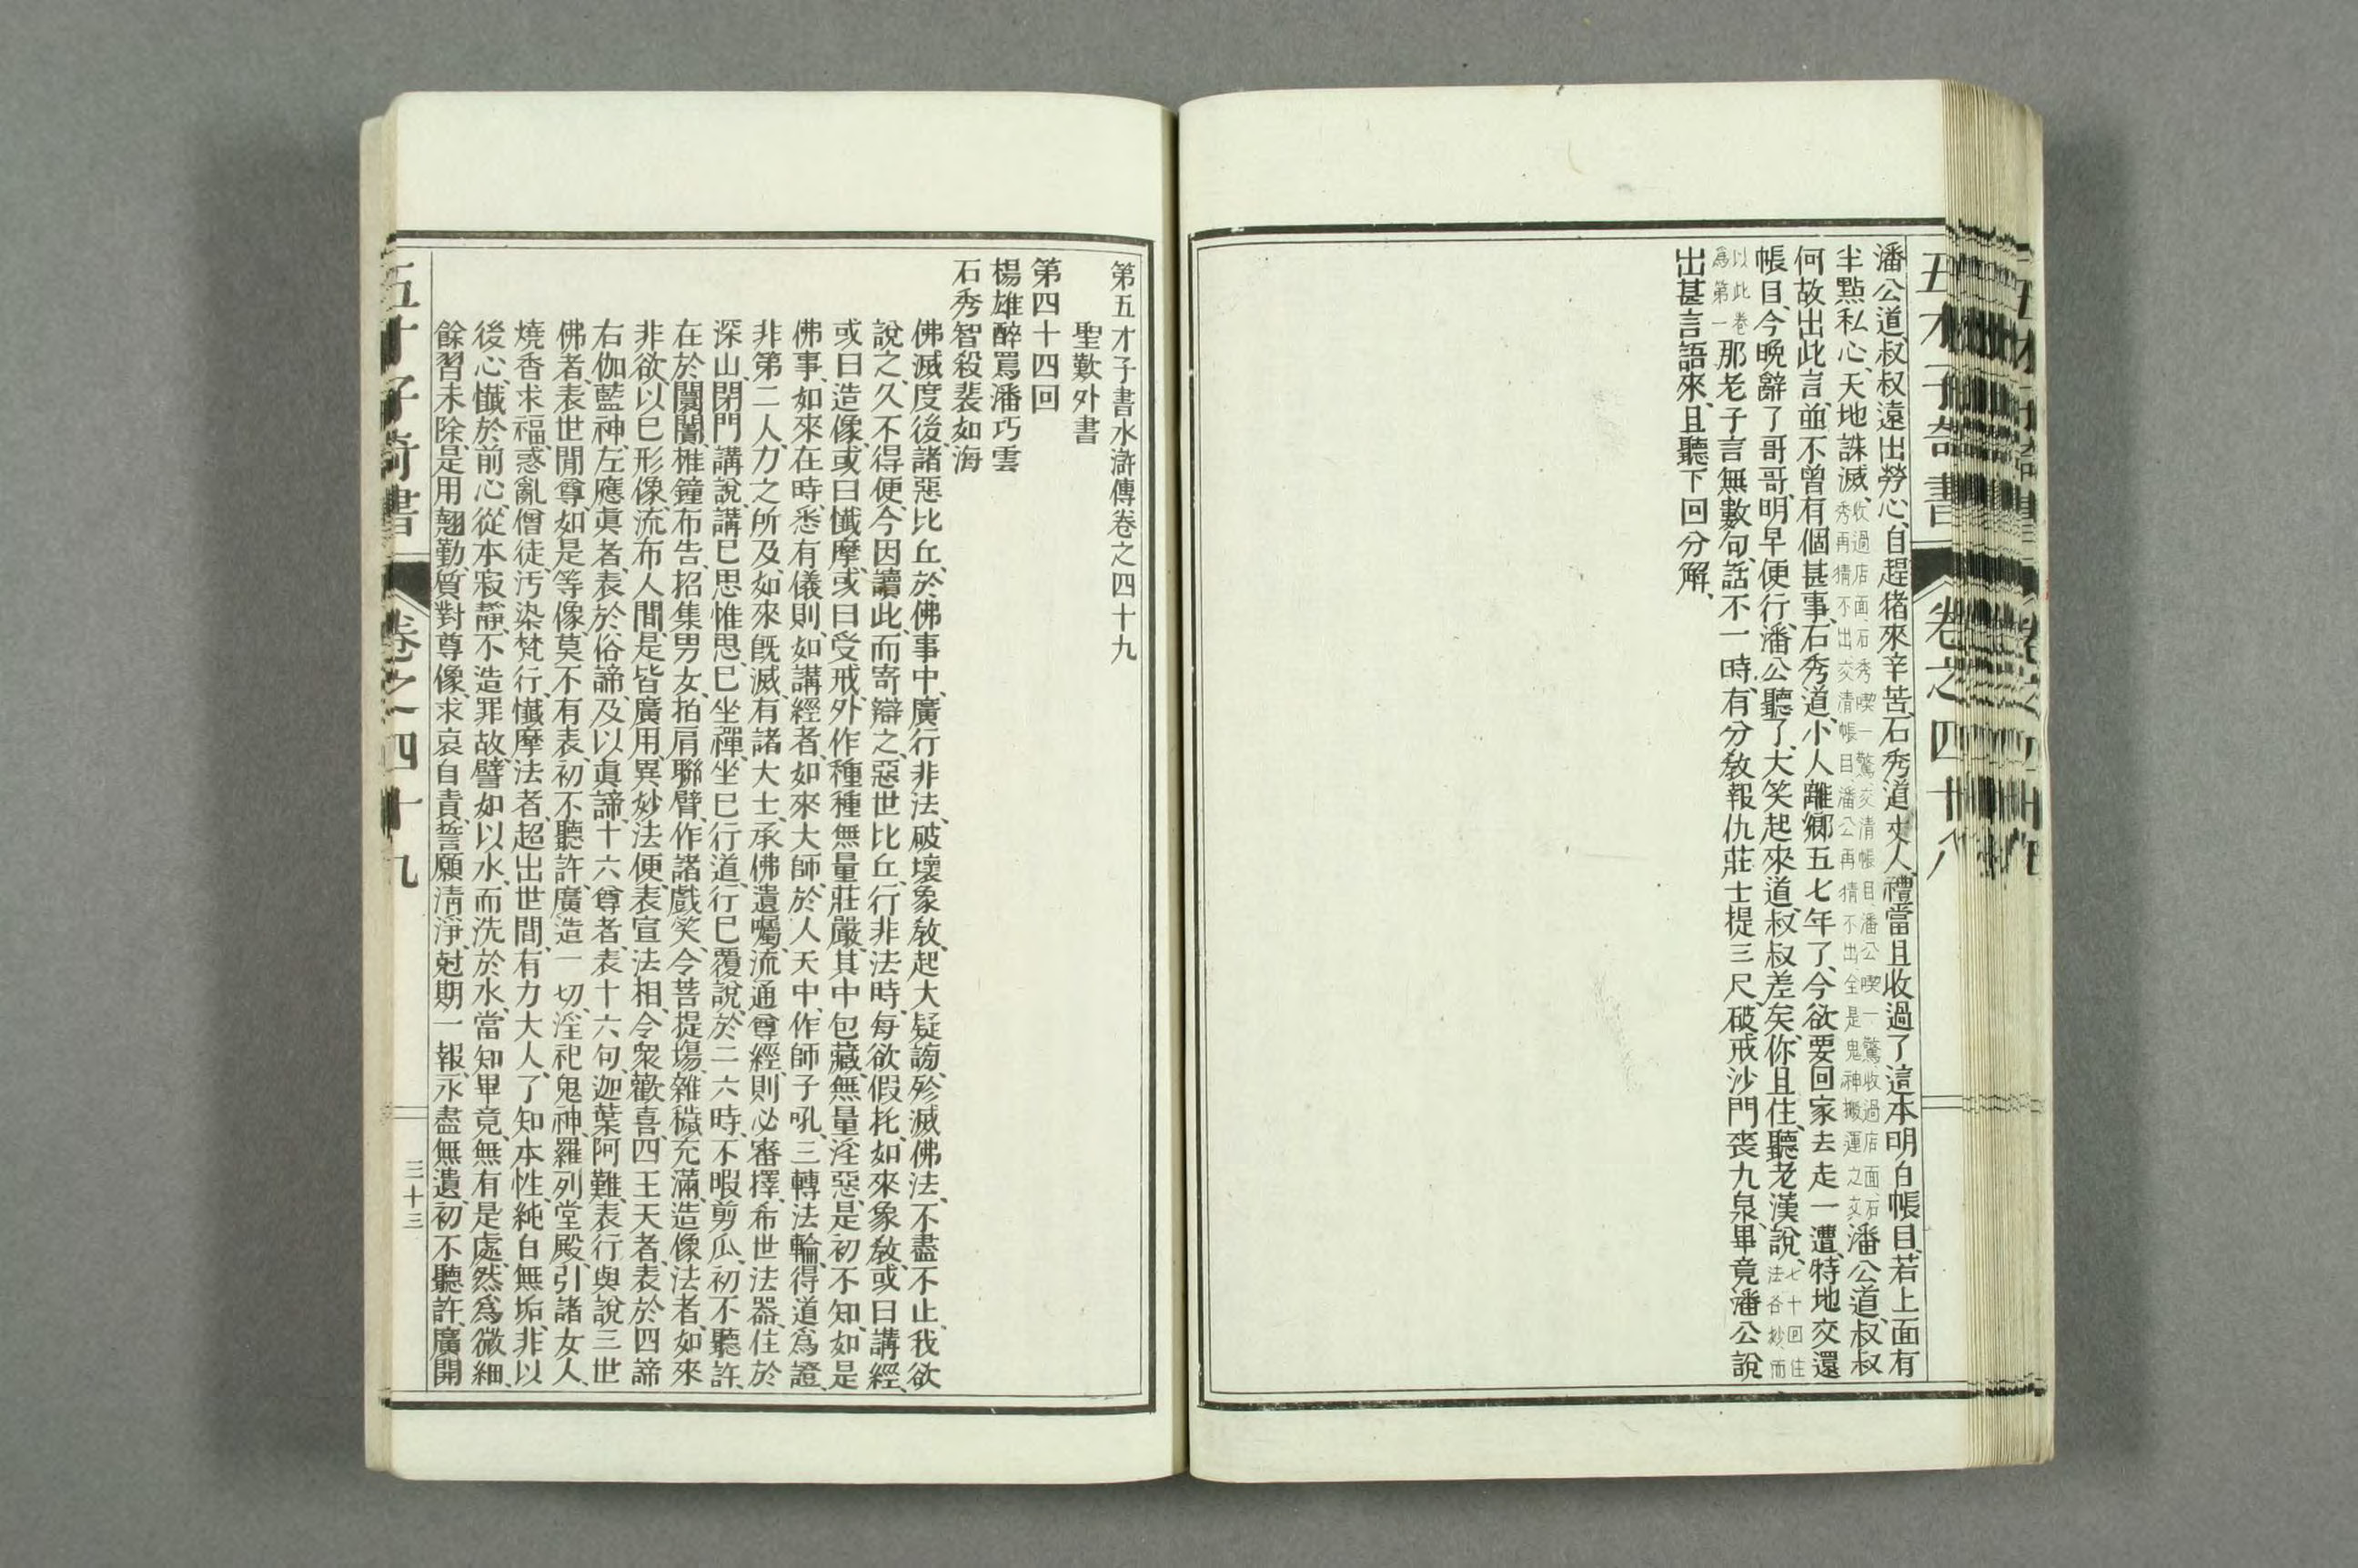 五才子奇書 卷之四十八
潘公道、叔叔遠出勞心、自趕猪來辛苦、石秀道、丈人、禮當、且收過了這本明白帳目、若上面有
半點私心、天地誅滅、收過店面、石秀喫一驚、交清帳目、潘公喫一驚、收過店面、石秀再猜不出、交清帳目、潘公再猜不出、全是鬼神搬運之文潘公道、叔叔
何故出此言、並不曾有個甚事、石秀道、小人離鄉五七年了、今欲要回家去走一遭、特地交還
帳目、今晚辭了哥哥、明早便行、潘公聽了、大笑起來道、叔叔差矣、你且住、聽老漢說、七十回住法各妙、而
以此卷爲第一那老子言無數句、話不一時、有分敎報仇莊士提三尺、破戒沙門喪九泉、畢竟潘公說
出甚言語來、且聽下回分解、
第五才子書水滸傳卷之四十九
聖歎外書
第四十四回
楊雄醉罵潘巧雲
石秀智殺裴如海
佛滅度後、諸惡比丘、於佛事中、廣行非法、破壞象敎、起大疑謗、殄滅佛法、不盡不止、我欲
說之、久不得便、今因讀此、而寄辯之、惡世比丘、行非法時、每欲假托、如來象敎、或曰講經、
或曰造像、或曰懺摩、或曰受戒、外作種種無量莊嚴、其中包藏、無量淫惡、是初不知、如是
佛事、如來在時、悉有儀則、如講經者、如來大師、於人天中、作師子吼、三轉法輪、得道爲證、
非第二人、力之所及、如來旣滅、有諸大士、承佛遺囑、流通尊經、則必審擇、希世法器、住於
深山、閉門講說、講已思惟、思已坐禪、坐已行道、行已覆說、於二六時、不暇剪瓜、初不聽許、
在於闤闠、椎鐘布告、招集男女、拍肩聯臂、作諸戲笑、令菩提塲、雜穢充滿、造像法者、如來
非欲、以已形像、流布人間、是皆廣用、異妙法便、表宣法相、令衆歡喜、四王天者、表於四諦
右伽藍神、左應眞者、表於俗諦、及以眞諦、十六尊者、表十六句、迦葉阿難、表行與說、三世
佛者、表世間尊、如是等像、莫不有表、初不聽許、廣造一切、淫祀鬼神、羅列堂殿、引諸女人、
燒香求福、惑亂僧徒、汚染梵行、懺摩法者、超出世間、有力大人、了知本性、純白無垢、非以
後心、懺於前心、從本寂靜、不造罪故、譬如以水、而洗於水、當知畢竟、無有是處、然爲微細、
餘習未除、是用翹勤、質對尊像、求哀自責、誓願淸淨、尅期一報、永盡無遺、初不聽許、廣開
五才子奇書 卷之四十九 三十三